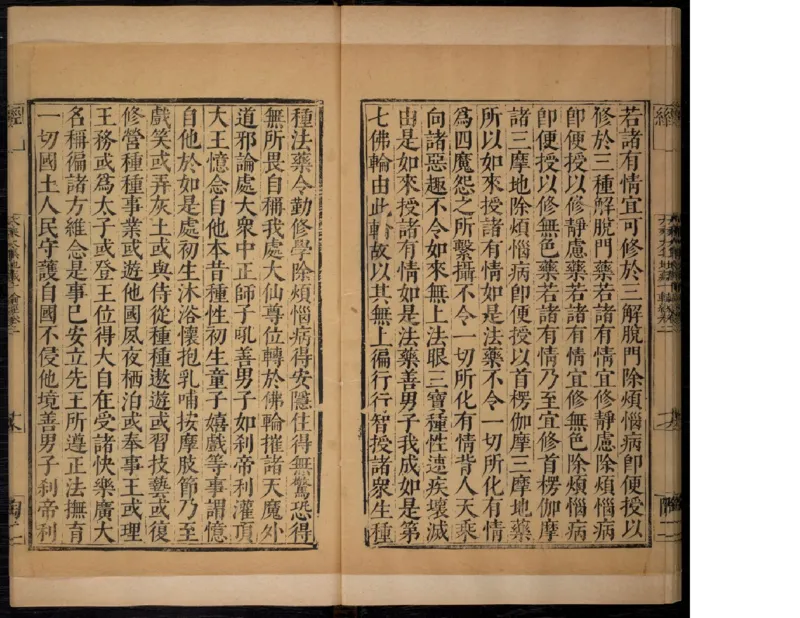 若諸有情宜可修於三解脫門除煩惱病卽便授以
修於三種解脫門藥若諸有情宜修靜慮除煩惱病
卽便授以修靜慮藥若諸有情宜修無色除煩惱病
卽便授以修無色藥若諸有情乃至宜修首楞伽摩
諸三摩地除煩惱病卽便授以首楞伽摩三摩地藥
所以如來授諸有情如是法藥不令一切所化有情
爲四魔怨之所繫攝不令一切所化有情背人天乘
向諸惡趣不令如來無上法眼三寶種性速疾壞滅
由是如來授諸有情如是法藥善男子我成如是第
七佛輪由此輪故以其無上徧行行智授諸衆生種
種法藥令勤修學除煩惱病得安隱住得無驚恐得
無所畏自稱我處大仙尊位轉於佛輪摧諸天魔外
道邪論處大衆中正師子吼善男子如刹帝利灌頂
大王憶念自他本昔種性初生童子嬉戲等事謂憶
自他於如是處初生沐浴懷抱乳哺按摩肢節乃至
戲笑或弄灰土或與侍從種種遨遊或習技藝或復
修營種種事業或遊他國夙夜栖泊或奉事王或理
王務或爲太子或登王位得大自在受諸快樂廣大
名稱徧諸方維念是事已安立先王所遵正法撫育
一切國土人民守護自國不侵他境善男子刹帝利